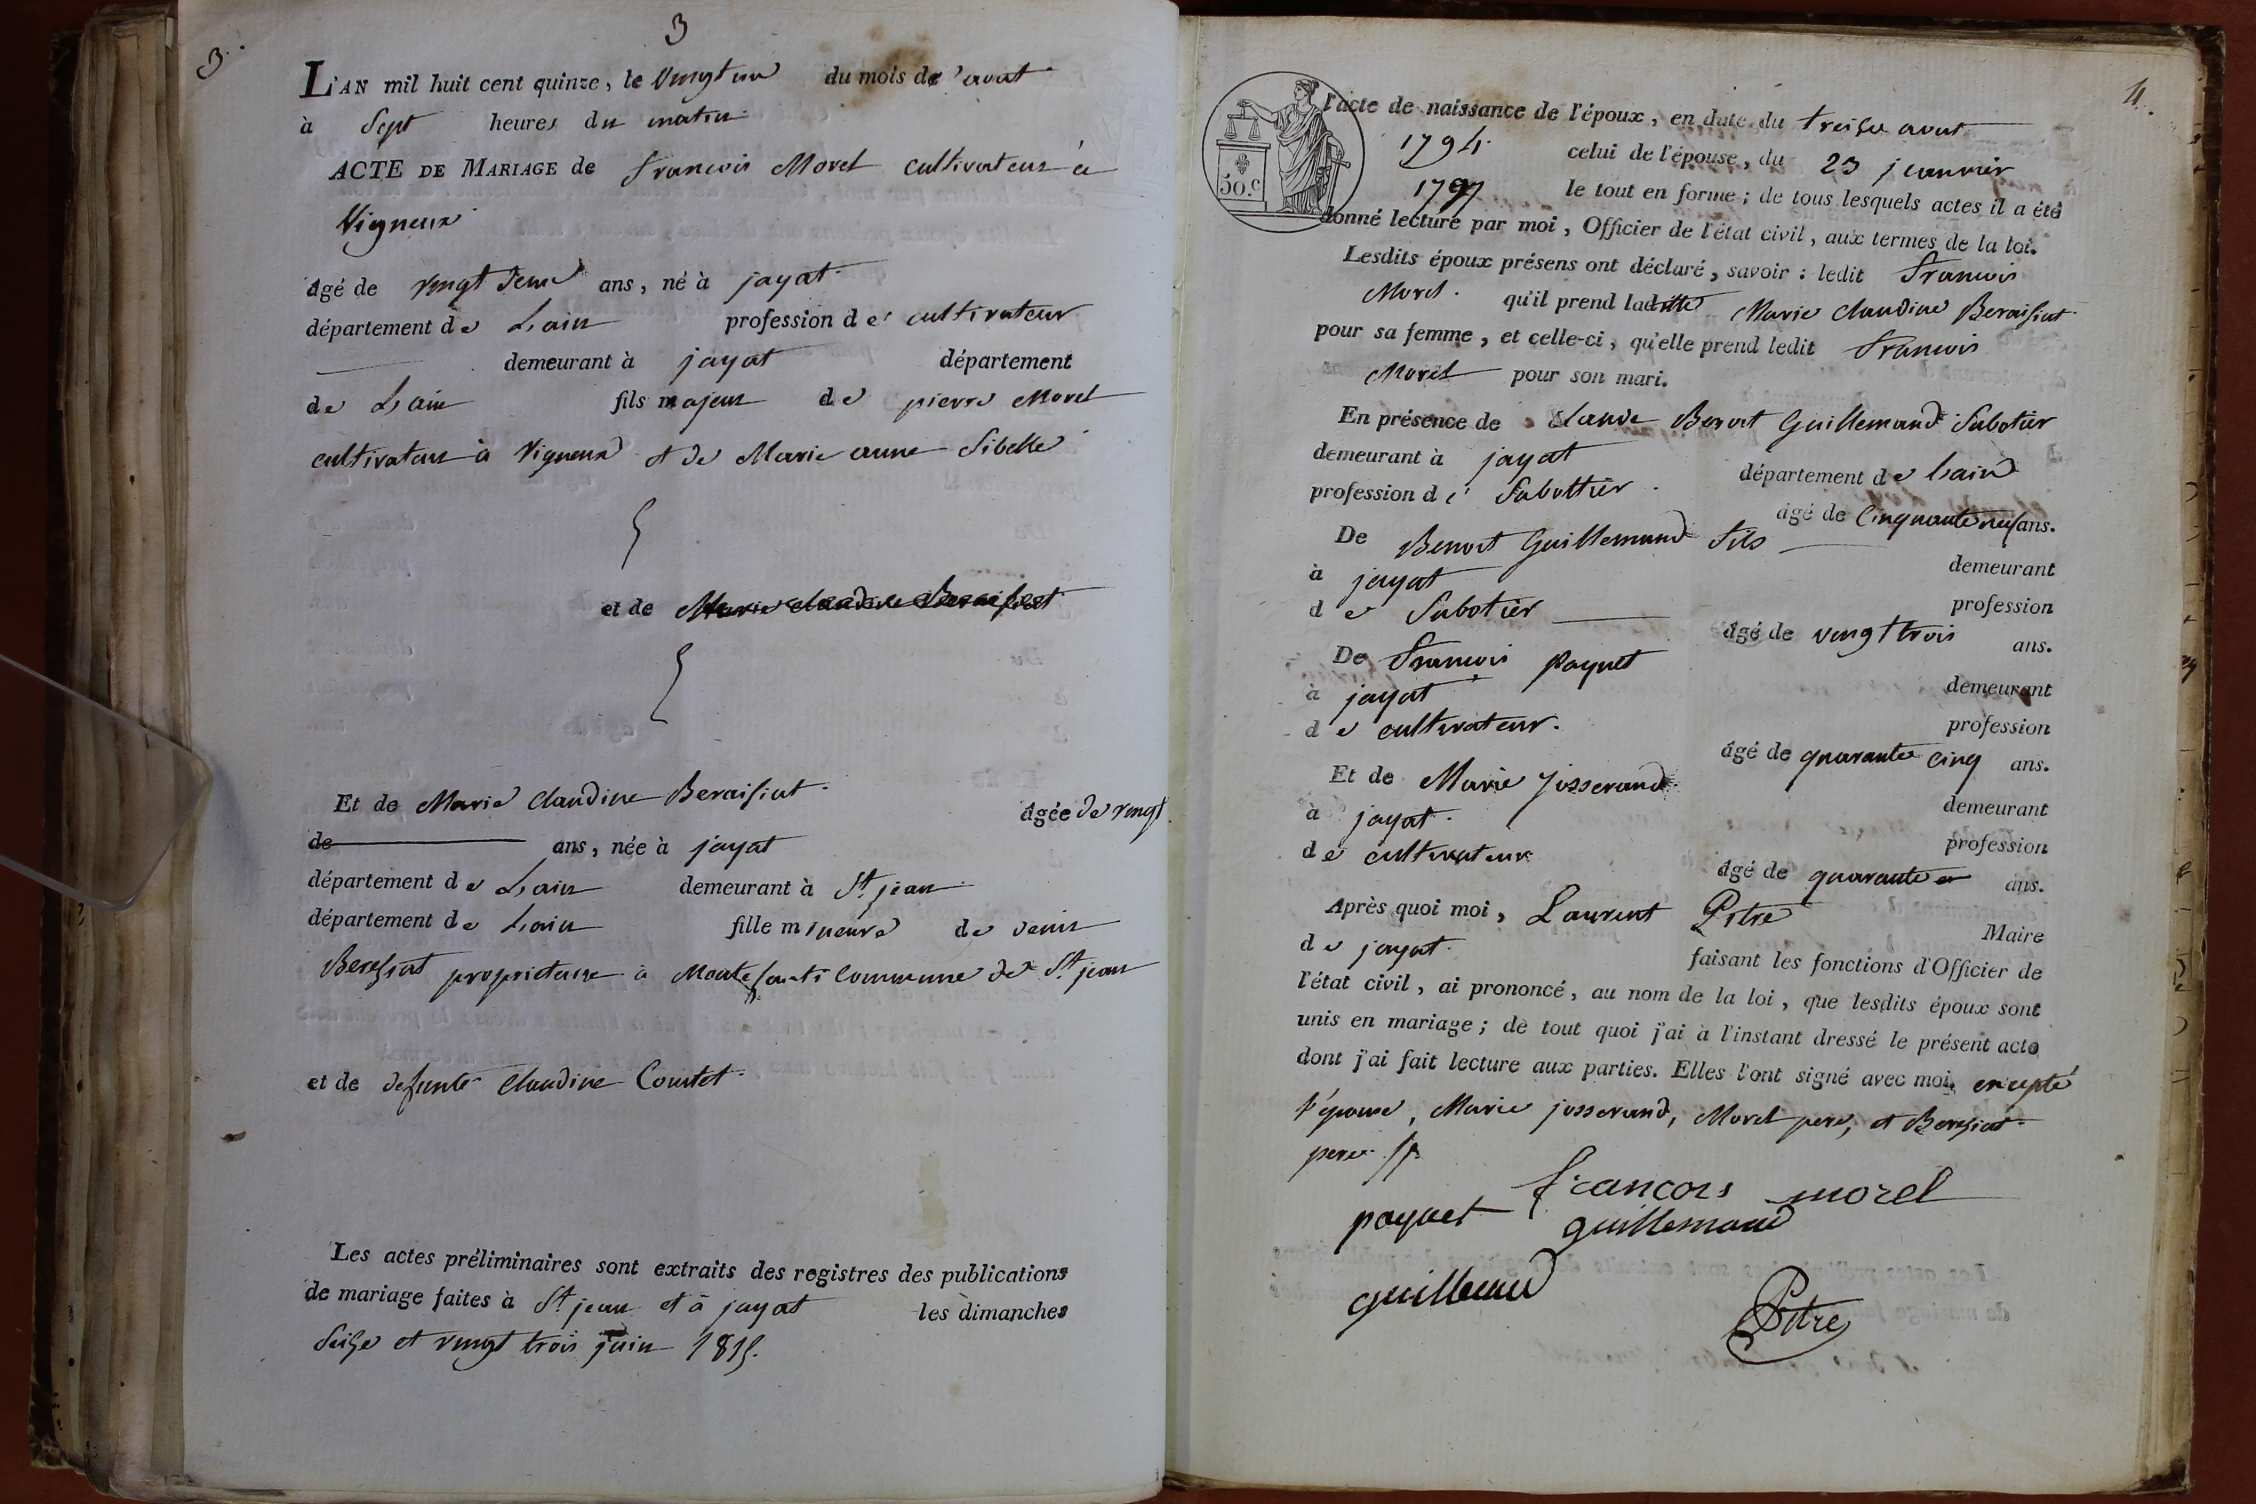 3
3
L'AN mil huit cent quinze, le vingt un du mois de avout
à Sept heures du matin
ACTE DE MARIAGE de francois Morel cultivateur à
Vigneux
âgé de vingt deux ans, né à jayat
département de Lain profession de cultivateur
demeurant à jayat département
de Lain fils majeur de pierre Morel
cultivateur à Vigneux et de Marie anne Sibelle
et de Marie claudine Beraisiat
Et de Marie Claudine Beraisiat. âgée de vingt
de ans, née à jayat
département de Lain demeurant à St jean
département de Lain fille mineure de denis
Beresiat proprietaire à commune de St jean
et de defunte Claudine Coutet
Les actes préliminaires sont extraits des registres des publications
de mariage faites à St jean et à jayat les dimanches
Seize et vingt trois juin 1815.
4
50.c
l'acte de naissance de l'époux, en date du treize avout
1794. celui de l'épouse, du 23 janvier
1797 le tout en forme; de tous lesquels actes il a été
donné lecture par moi, Officier de l'état civil, aux termes de la loi.
Lesdits époux présens ont déclaré, savoir: ledit francois
Morel. qu'il prend ladite Marie Claudine Beraisiat
pour sa femme, et celle-ci, qu'elle prend ledit francois
Morel pour son mari.
En présence de Claude Benoit Guillemaud Sabotier
demeurant à jayat département de Lain
profession de Sabottier. âgé de Cinquante neuf ans.
De Benoit Guillemaud fils demeurant
à jayat profession
de Sabotier âgé de vingt trois ans.
De francois paquet demeurant
à jayat profession
de cultivateur. âgé de quarante cinq ans.
Et de Marie josserand demeurant
à jayat. profession
de cultivateur âgé de quarante ans.
Après quoi moi, Laurent Pitre Maire
de jayat. faisant les fonctions d'Officier de
l'état civil, ai prononcé, au nom de la loi, que lesdits époux sont
unis en mariage; de tout quoi j'ai à l'instant dressé le présent acte
dont j'ai fait lecture aux parties. Elles l'ont signé avec moi, excepté
l'épouse, Marie josserand, Morel pere, et Beresiat
pere
francois morel
paquet guillemaud
guillemaud
Pitre